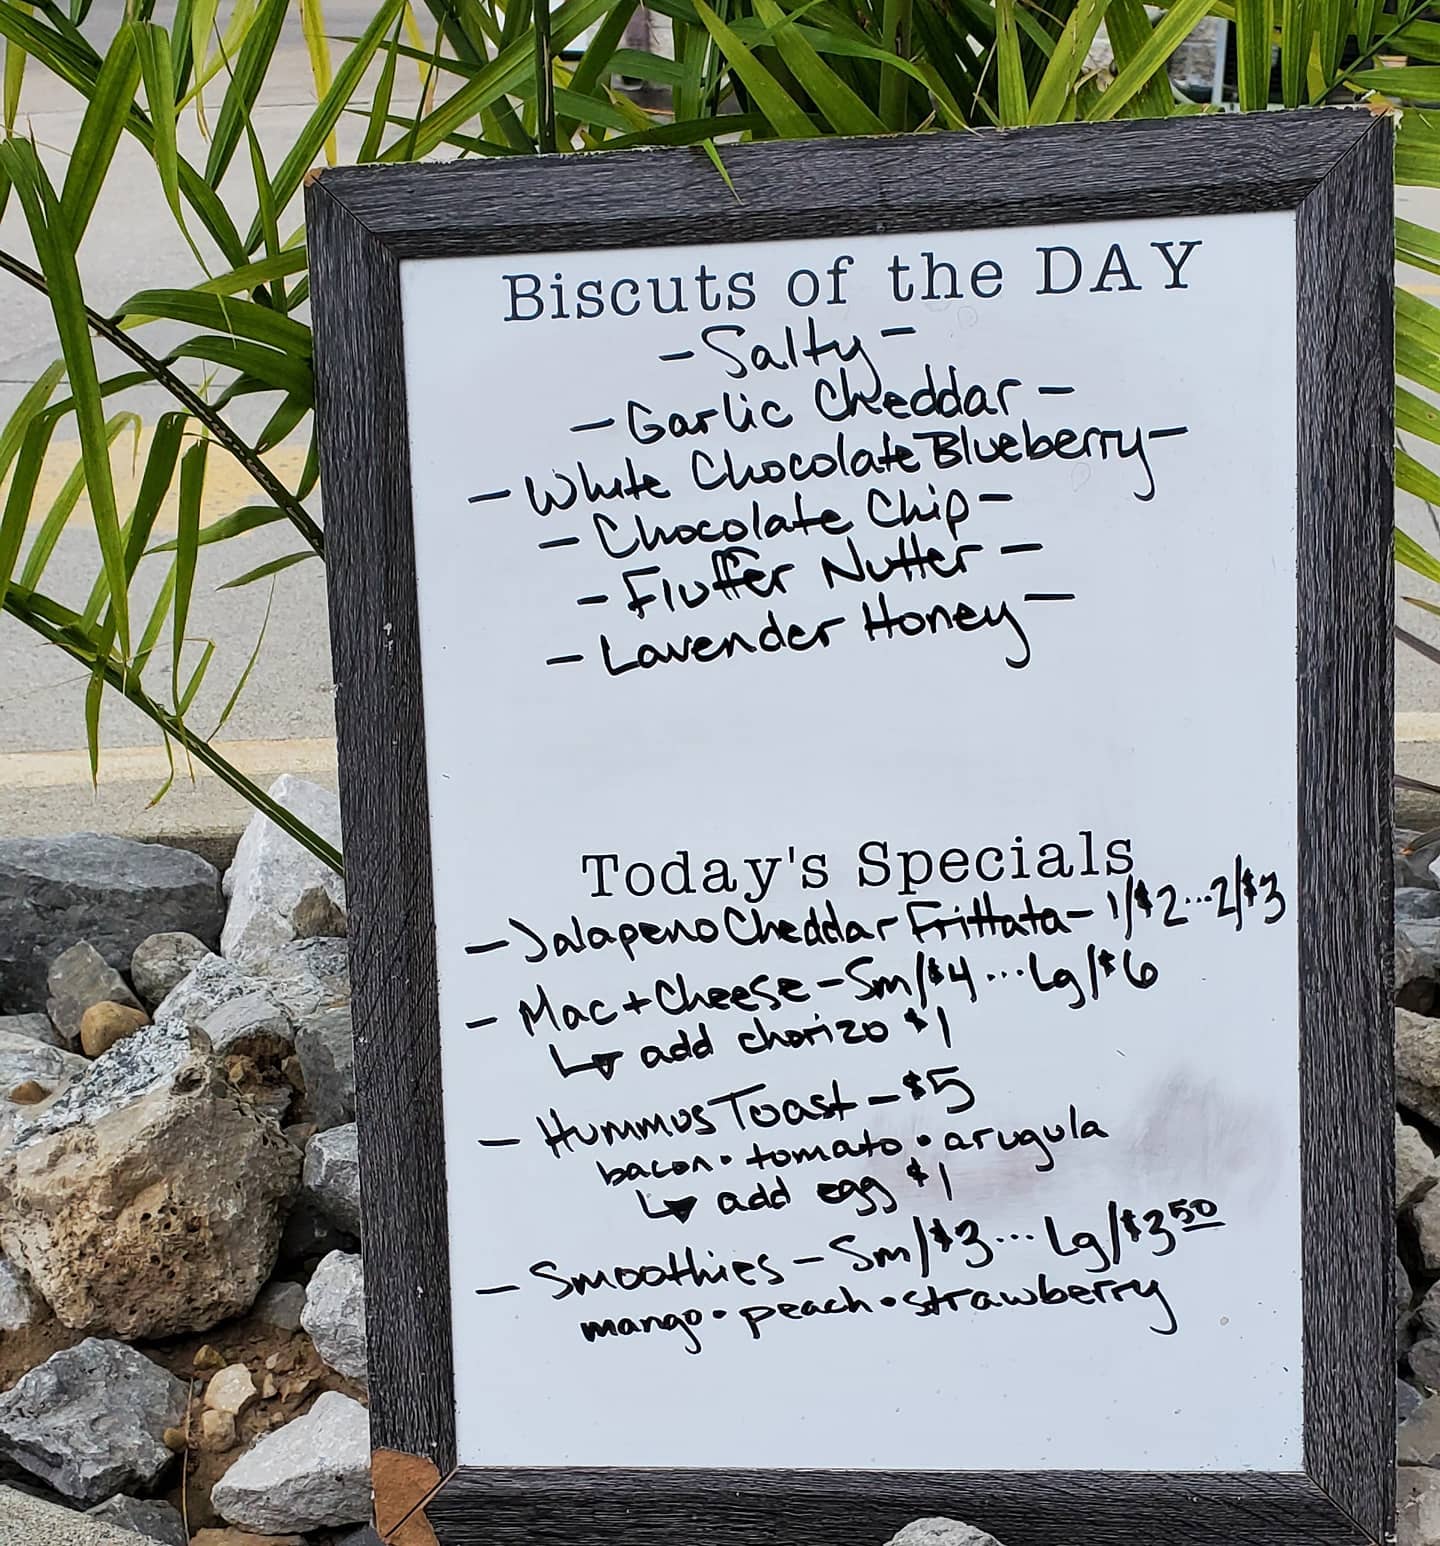 Biscuts of the DAY
- Salty -
- Garlic Cheddar -
- White Chocolate Blueberry -
- Chocolate Chip -
- Fluffer Nutter -
- Lavender Honey -
Today's Specials
- Jalapeno Cheddar Frittata - 1/$2...2/$3
- Mac + Cheese - Sm/$4 ... Lg/$6
↳ add chorizo $1
- Hummus Toast - $5
bacon • tomato • arugula
↳ add egg $1
- Smoothies - Sm/$3... Lg/$3 50
mango • peach • strawberry